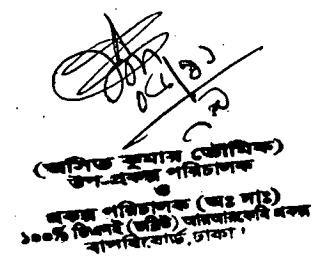 (অসিত কুমার ভৌমিক)
উপ-প্রকল্প পরিচালক
ও
প্রকল্প পরিচালক (অঃ দাঃ)
১০০% ডিএনই (জুইউ) আরআরকেবি প্রকল্প
বাপবিবোর্ড, ঢাকা।